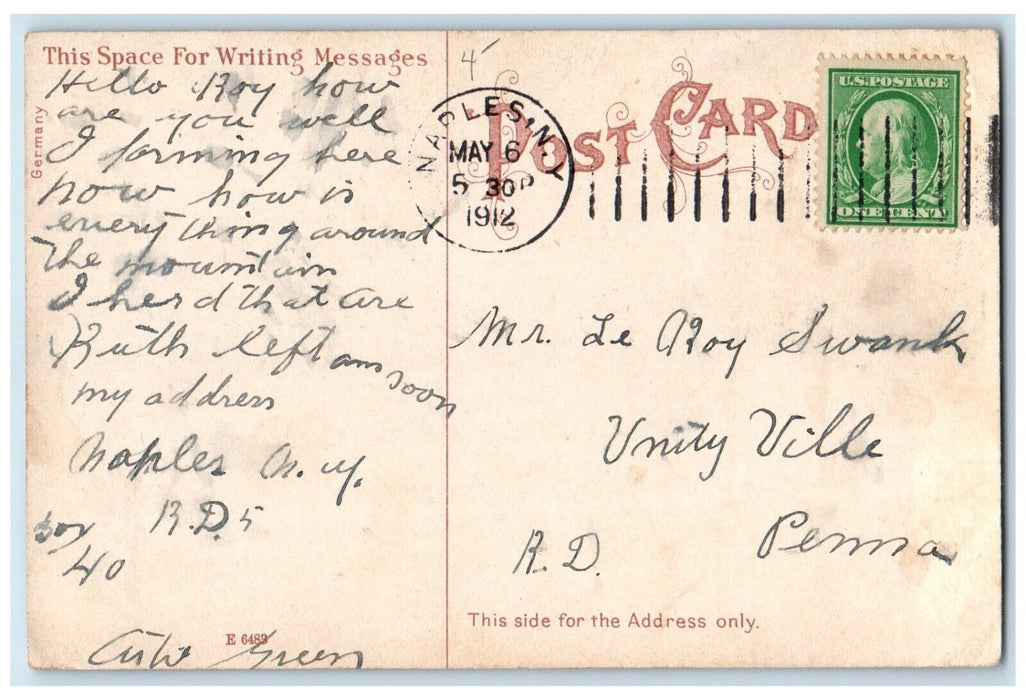 This Space For Writing Messages
Hello Roy how
are you well
I farming here
now how is
everything around
the mountain
I herd that are
Ruth left
soon
my address
Naples N. Y.
R.D. 5
Box
40
Green
E 6483
Germany
4
POST CARD
NAPLES, N.Y.
MAY 6
5 30 P
1912
U.S. POSTAGE
ONE CENT
Mr. Le Roy Swank
Unity Ville
R. D.
Penna
This side for the Address only.